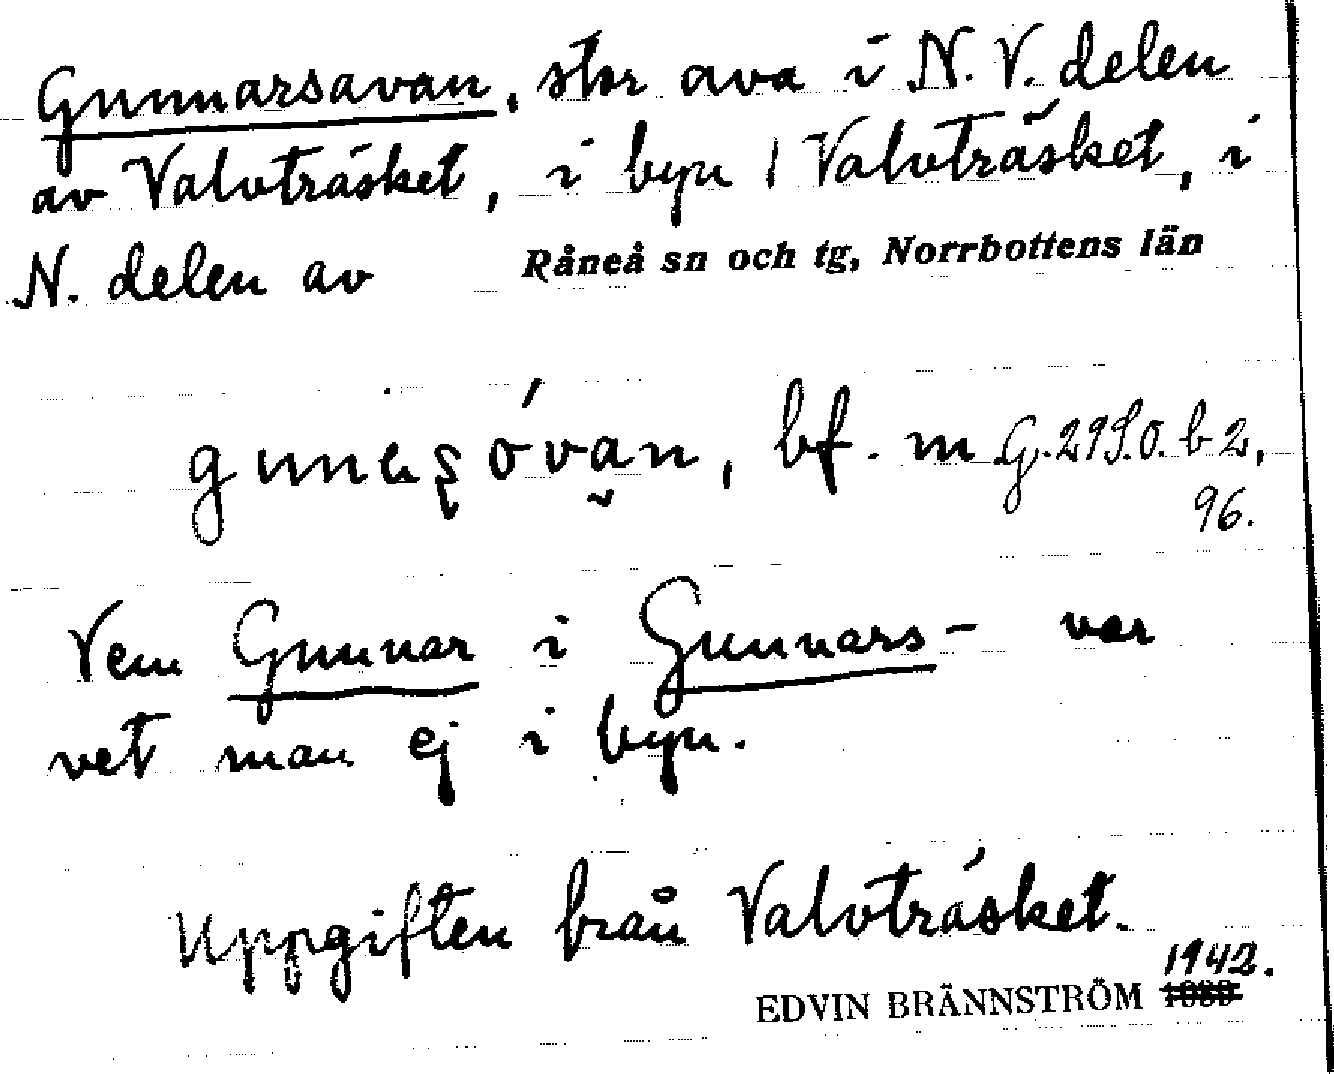 Gunnarsavan, stor ava i N.V. delen
av Valvträsket, i byn Valvträsket, i
N. delen av Råneå sn och tg, Norrbottens län
bf. m G. 29 S.O. b 2,
96.
Vem Gunnar i Gunnars- var
vet man ej i byn.
Uppgiften från Valvträsket.
1942.
EDVIN BRÄNNSTRÖM